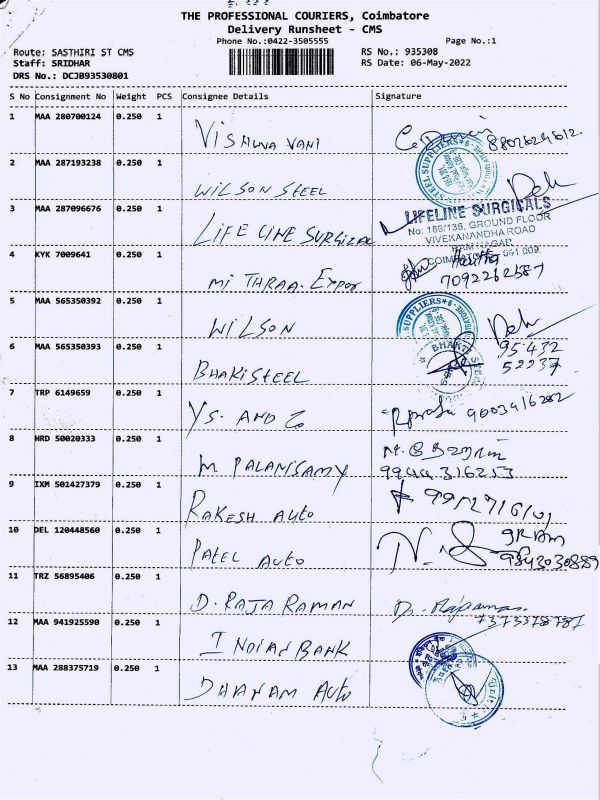 THE PROFESSIONAL COURIERS, Coimbatore
Delivery Runsheet - CMS
Phone No.:0422-3505555
Page No.:1
Route: SASTHIRI ST CMS
RS No.: 935308
Staff: SRIDHAR
RS Date: 06-May-2022
DRS No.: DCJB93530801
S No Consignment No Weight PCS Consignee Details Signature
1 MAA 280700124 0.250 1 VISHWA VANI
2 MAA 287193238 0.250 1 WILSON STEEL
STEEL SUPPLIERS
3 MAA 287096676 0.250 1 LIFE LINE SURGICAL
LIFELINE SURGICALS
No: 188/136, GROUND FLOOR
VIVEKANANDHA ROAD
RAM NAGAR
COIMBATORE - 641 009
4 KYK 7009641 0.250 1 MITHRAA. Export
7092262587
5 MAA 565350392 0.250 1 WILSON
SUPPLIERS
6 MAA 565350393 0.250 1 BHAKISTEEL
BHAKTI
95432
52237
7 TRP 6149659 0.250 1 YS. AND Co
9003416282
8 HRD 50020333 0.250 1 M PALANISAMY
9944 316253
9 IXM 501427379 0.250 1 RAKESH AUTO
10 DEL 120448560 0.250 1 PATEL AUTO
9843030889
11 TRZ 56895406 0.250 1 D. RAJA RAMAN
7373378787
12 MAA 941925590 0.250 1 INDIAN BANK
13 MAA 288375719 0.250 1 DHANAM AUTO